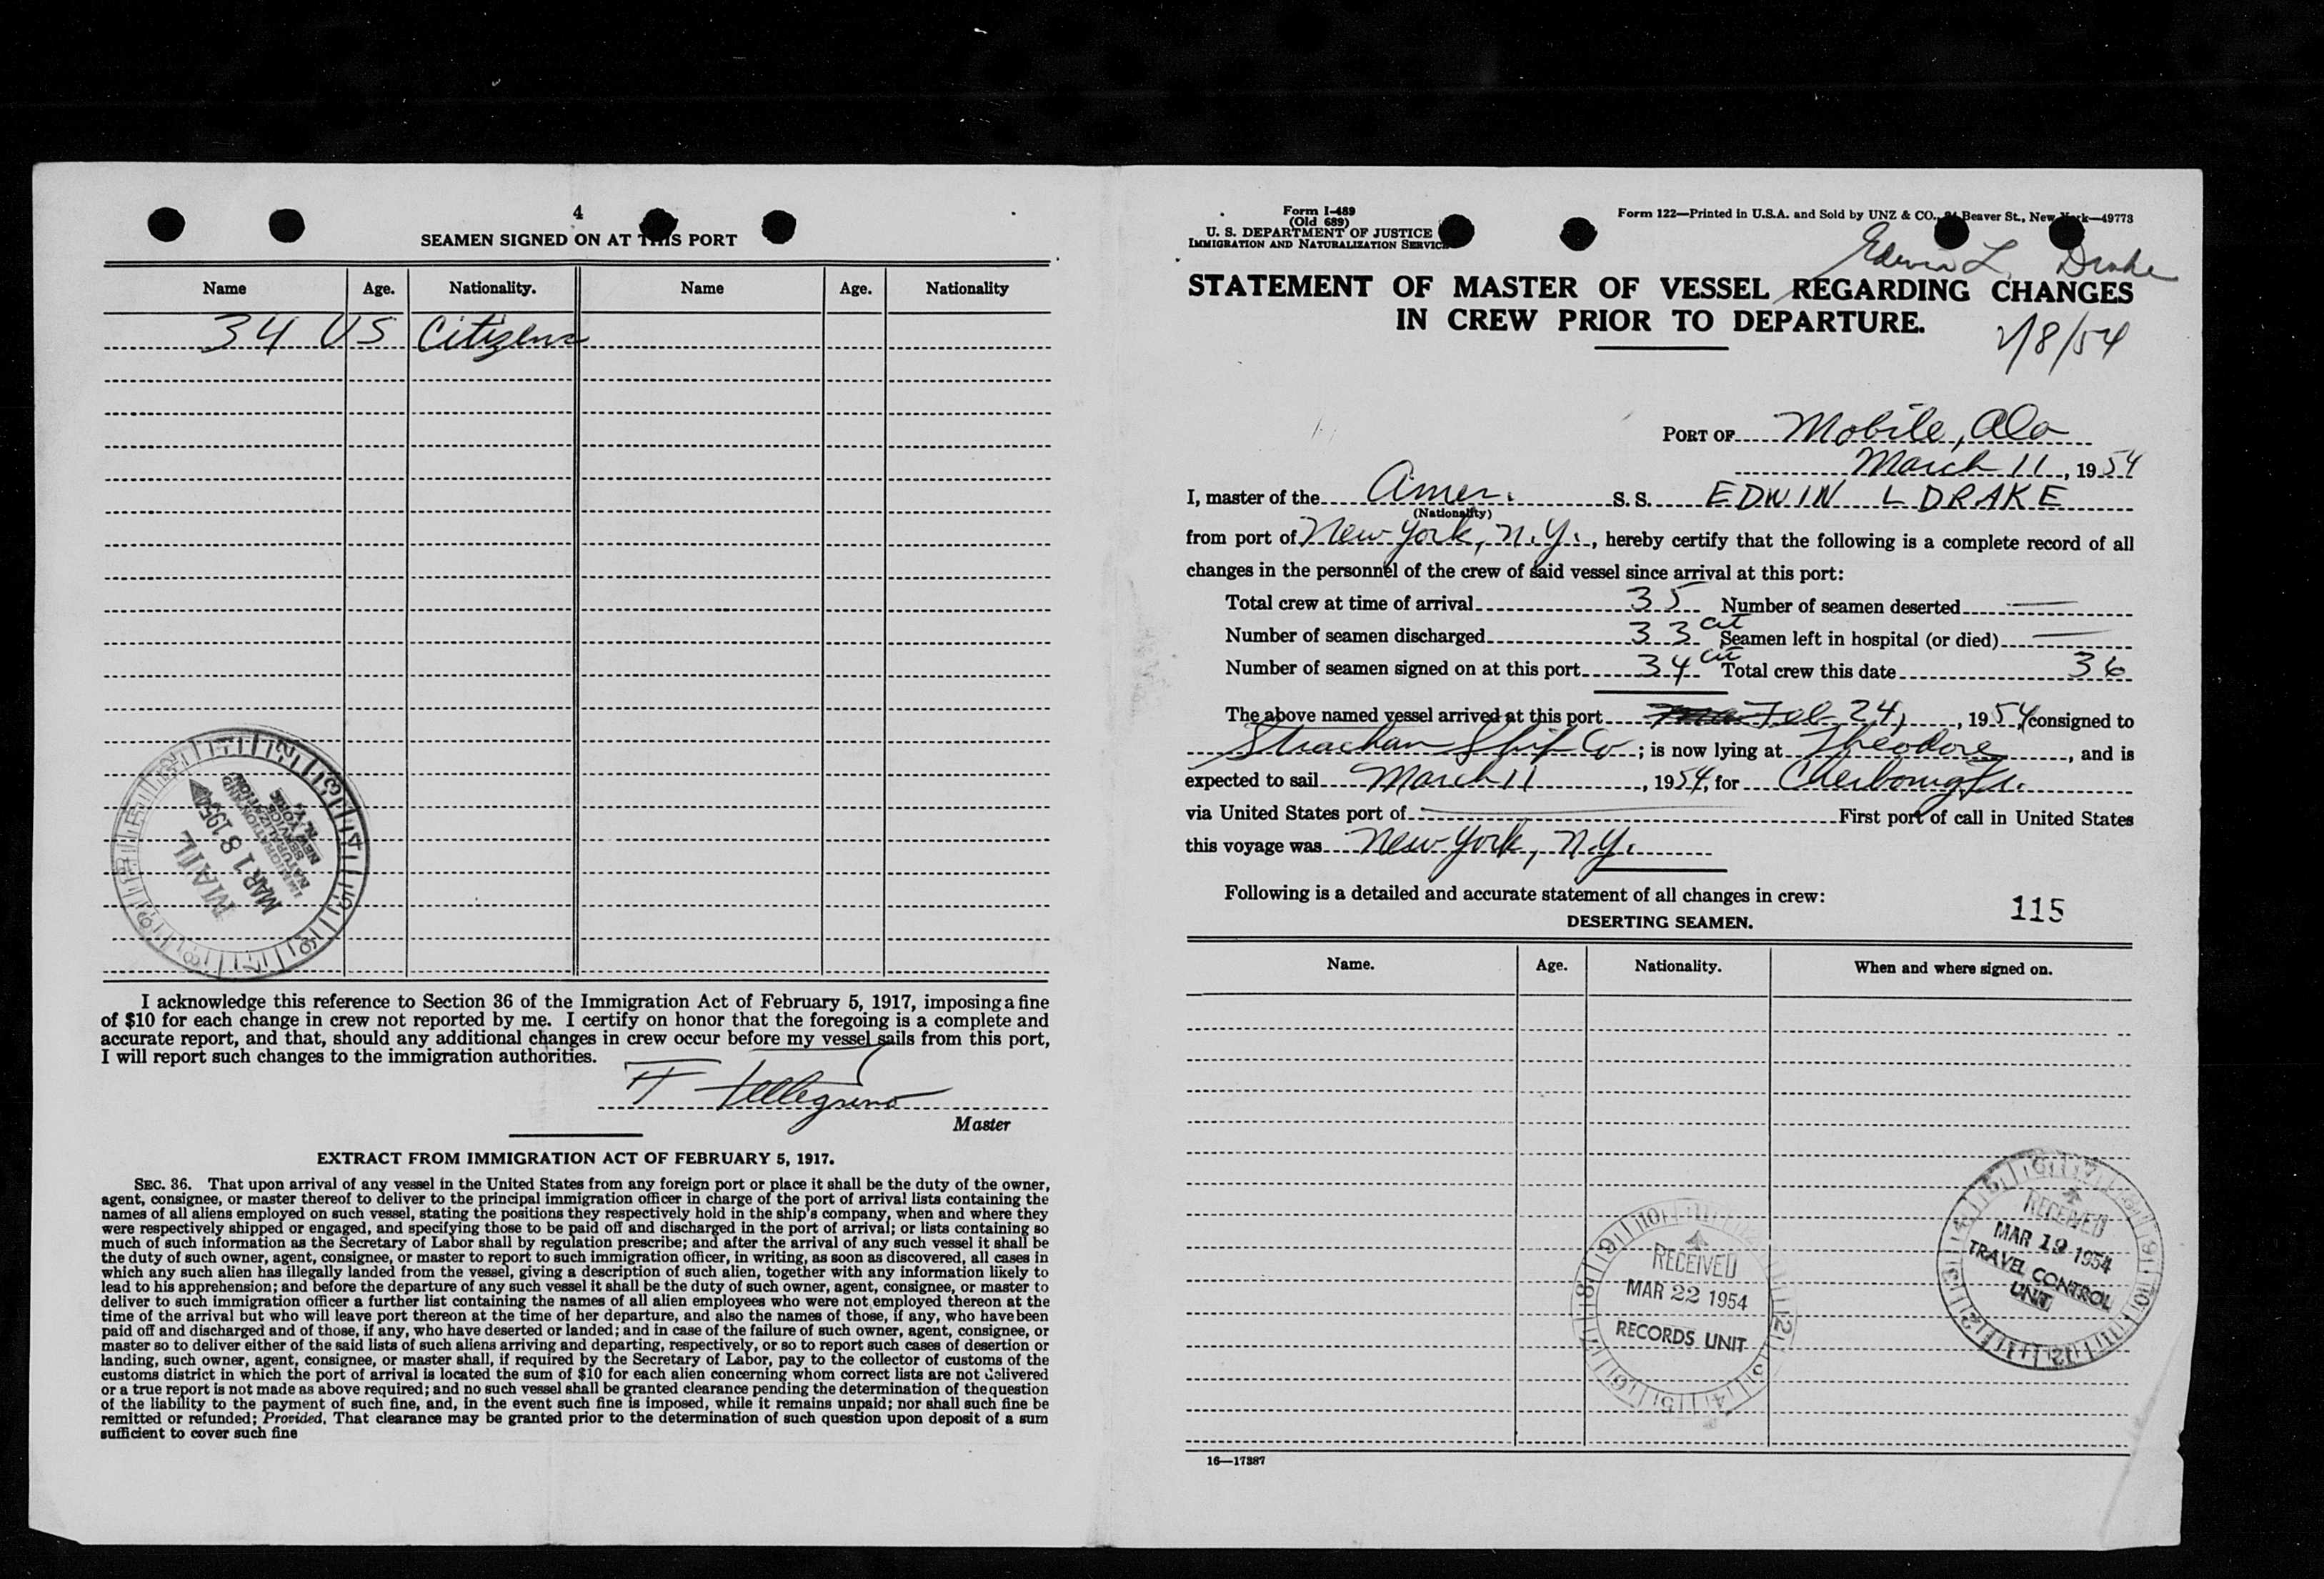 4
SEAMEN SIGNED ON AT THIS PORT
Name Age. Nationality. Name Age. Nationality
34 US Citizens
MAIL
MAR 18 1954
IMMIGRATION AND
NATURALIZATION
SERVICE
NEW YORK
N.Y.
I acknowledge this reference to Section 36 of the Immigration Act of February 5, 1917, imposing a fine
of $10 for each change in crew not reported by me. I certify on honor that the foregoing is a complete and
accurate report, and that, should any additional changes in crew occur before my vessel sails from this port,
I will report such changes to the immigration authorities.
F Pellegrino
Master
EXTRACT FROM IMMIGRATION ACT OF FEBRUARY 5, 1917.
SEC. 36. That upon arrival of any vessel in the United States from any foreign port or place it shall be the duty of the owner,
agent, consignee, or master thereof to deliver to the principal immigration officer in charge of the port of arrival lists containing the
names of all aliens employed on such vessel, stating the positions they respectively hold in the ship's company, when and where they
were respectively shipped or engaged, and specifying those to be paid off and discharged in the port of arrival; or lists containing so
much of such information as the Secretary of Labor shall by regulation prescribe; and after the arrival of any such vessel it shall be
the duty of such owner, agent, consignee, or master to report to such immigration officer, in writing, as soon as discovered, all cases in
which any such alien has illegally landed from the vessel, giving a description of such alien, together with any information likely to
lead to his apprehension; and before the departure of any such vessel it shall be the duty of such owner, agent, consignee, or master to
deliver to such immigration officer a further list containing the names of all alien employees who were not employed thereon at the
time of the arrival but who will leave port thereon at the time of her departure, and also the names of those, if any, who have been
paid off and discharged and of those, if any, who have deserted or landed; and in case of the failure of such owner, agent, consignee, or
master so to deliver either of the said lists of such aliens arriving and departing, respectively, or so to report such cases of desertion or
landing, such owner, agent, consignee, or master shall, if required by the Secretary of Labor, pay to the collector of customs of the
customs district in which the port of arrival is located the sum of $10 for each alien concerning whom correct lists are not delivered
or a true report is not made as above required; and no such vessel shall be granted clearance pending the determination of the question
of the liability to the payment of such fine, and, in the event such fine is imposed, while it remains unpaid; nor shall such fine be
remitted or refunded; Provided, That clearance may be granted prior to the determination of such question upon deposit of a sum
sufficient to cover such fine
Form I-489
(Old 689)
U. S. DEPARTMENT OF JUSTICE
IMMIGRATION AND NATURALIZATION SERVICE
Form 122—Printed in U.S.A. and Sold by UNZ & CO., 24 Beaver St., New York—49773
Edwin L. Drake
STATEMENT OF MASTER OF VESSEL REGARDING CHANGES
IN CREW PRIOR TO DEPARTURE.
2/8/54
PORT OF Mobile, Ala
March 11, 1954
I, master of the Amer. S. S. EDWIN L DRAKE
(Nationality)
from port of New York, N.Y., hereby certify that the following is a complete record of all
changes in the personnel of the crew of said vessel since arrival at this port:
Total crew at time of arrival 35 Number of seamen deserted —
Number of seamen discharged 33 cit Seamen left in hospital (or died) —
Number of seamen signed on at this port 34 cit Total crew this date 36
The above named vessel arrived at this port Feb 24, 1954, consigned to
Strachan Ship Co; is now lying at Theodore, and is
expected to sail March 11, 1954, for Cherbourg Fr.
via United States port of — First port of call in United States
this voyage was New York, N.Y.
Following is a detailed and accurate statement of all changes in crew:
115
DESERTING SEAMEN.
Name. Age. Nationality. When and where signed on.
RECEIVED
MAR 19 1954
TRAVEL CONTROL
UNIT
RECEIVED
MAR 22 1954
RECORDS UNIT
16—17387